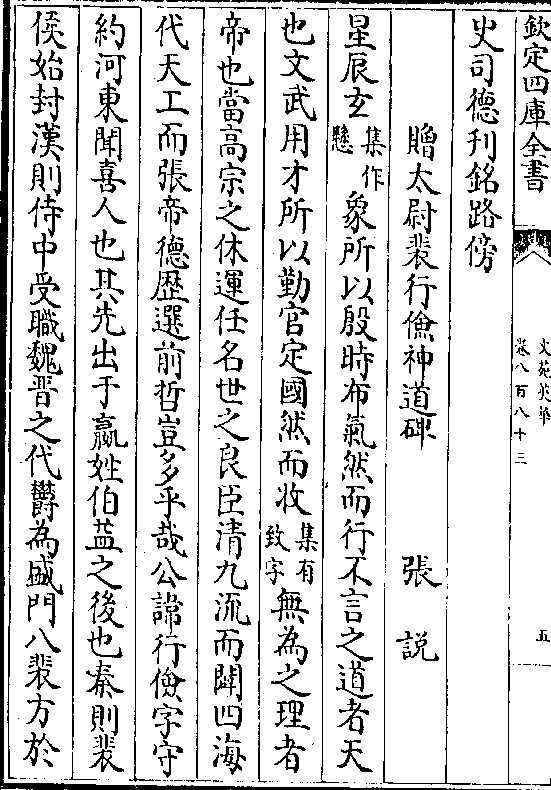 欽定四庫全書
文苑英華
卷八百八十三
五
史司德刋銘路傍
贈太尉裴行儉神道碑 張說
星辰玄集作懸象所以殷時布氣然而行不言之道者天
也文武用才所以勤官定國然而收集有致字無為之理者
帝也當高宗之休運任名世之良臣清九流而闢四海
代天工而張帝德歴選前哲豈多乎哉公諱行儉字守
約河東聞喜人也其先出于嬴姓伯益之後也秦則裴
侯始封漢則侍中受職魏晋之代欝為盛門八裴方於